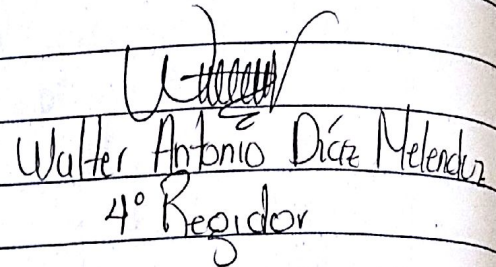 Walter Antonio Díaz Melendez
4° Regidor